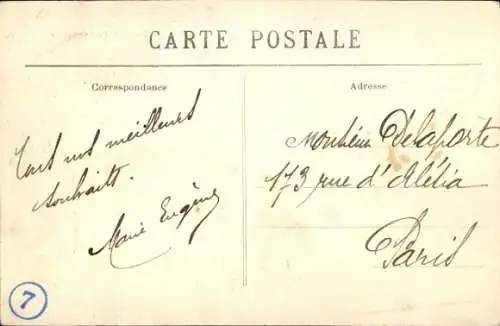 CARTE POSTALE
Correspondance
Adresse
Tous nos meilleurs
souhaits.
Marie Eugène
Monsieur Delaporte
173 rue d'Alésia
Paris
7